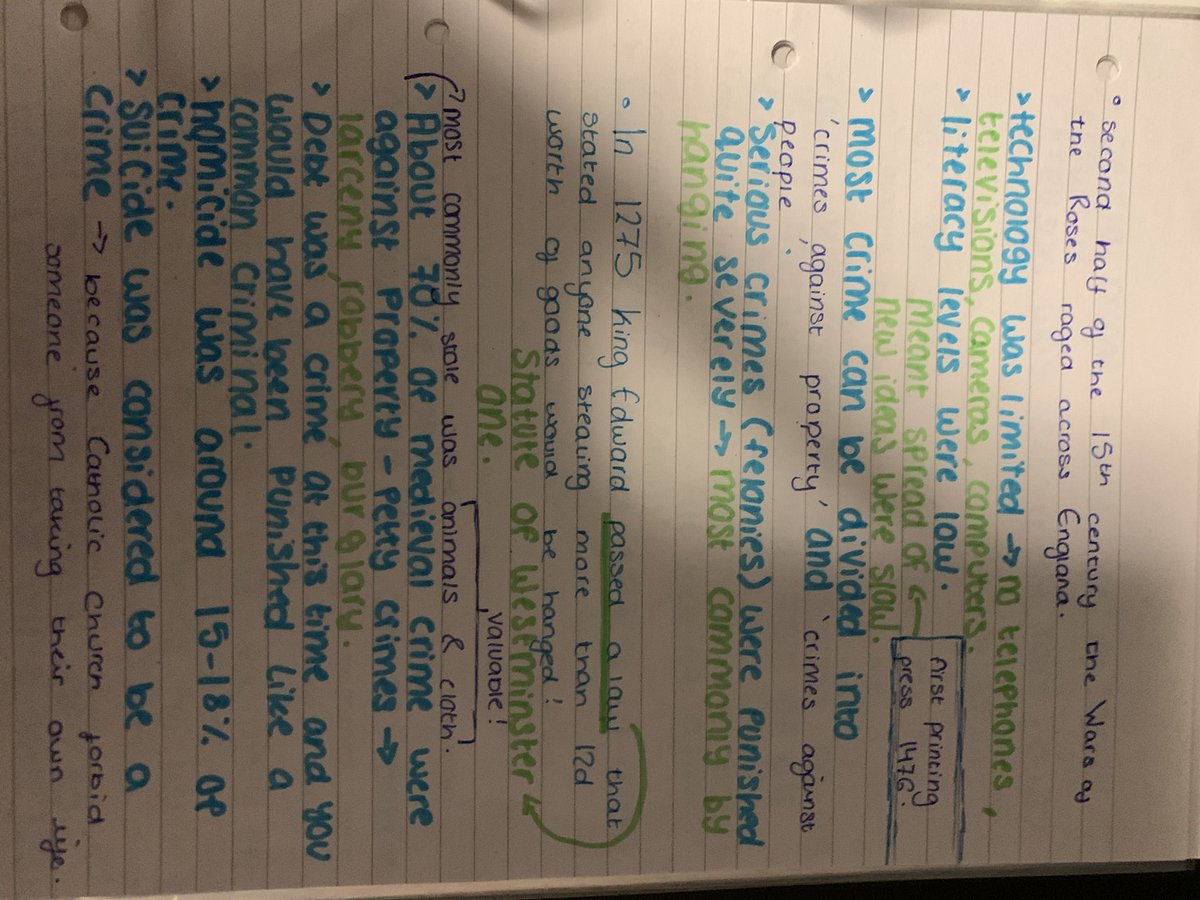 • second half of the 15th century the Wars of
the Roses raged across England.
> technology was limited → no telephones,
televisions, cameras, computers.
> literacy levels were low.
meant spread of ←
new ideas were slow.
first printing
press 1476.
> most crime can be divided into
'crimes against property' and 'crimes against
people'
> Serious crimes (felonies) were punished
quite severely → most commonly by
hanging.
• In 1275 king Edward passed a law that
stated anyone stealing more than 12d
worth of goods would be hanged!
Statue of Westminster
one.
valuable!
most commonly stole was animals & cloth.
> About 70% of medieval crime were
against Property - Petty crimes →
larceny, robbery, burglary.
> Debt was a crime at this time and you
would have been Punished like a
common criminal.
> homicide was around 15-18% of
crime.
> Suicide was considered to be a
crime → because Catholic Church forbid
someone from taking their own life.